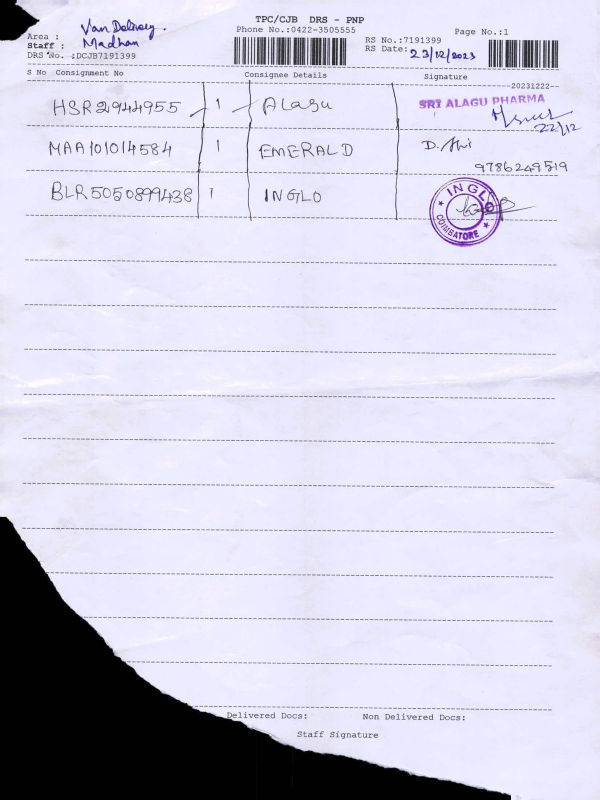 TPC/CJB DRS - PNP
Area : Van Delivery.
Phone No.:0422-3505555
Page No.:1
Staff : Madhan
RS No.:7191399
DRS No. :DCJB7191399
RS Date: 23/12/2023
S No Consignment No Consignee Details Signature
--20231222--
HSR2944955 1 Alagu SRI ALAGU PHARMA
22/12
MAA101014584 1 EMERALD D.
9786249519
BLR5050899438 1 INGLO INGLO COIMBATORE
Delivered Docs: Non Delivered Docs:
Staff Signature